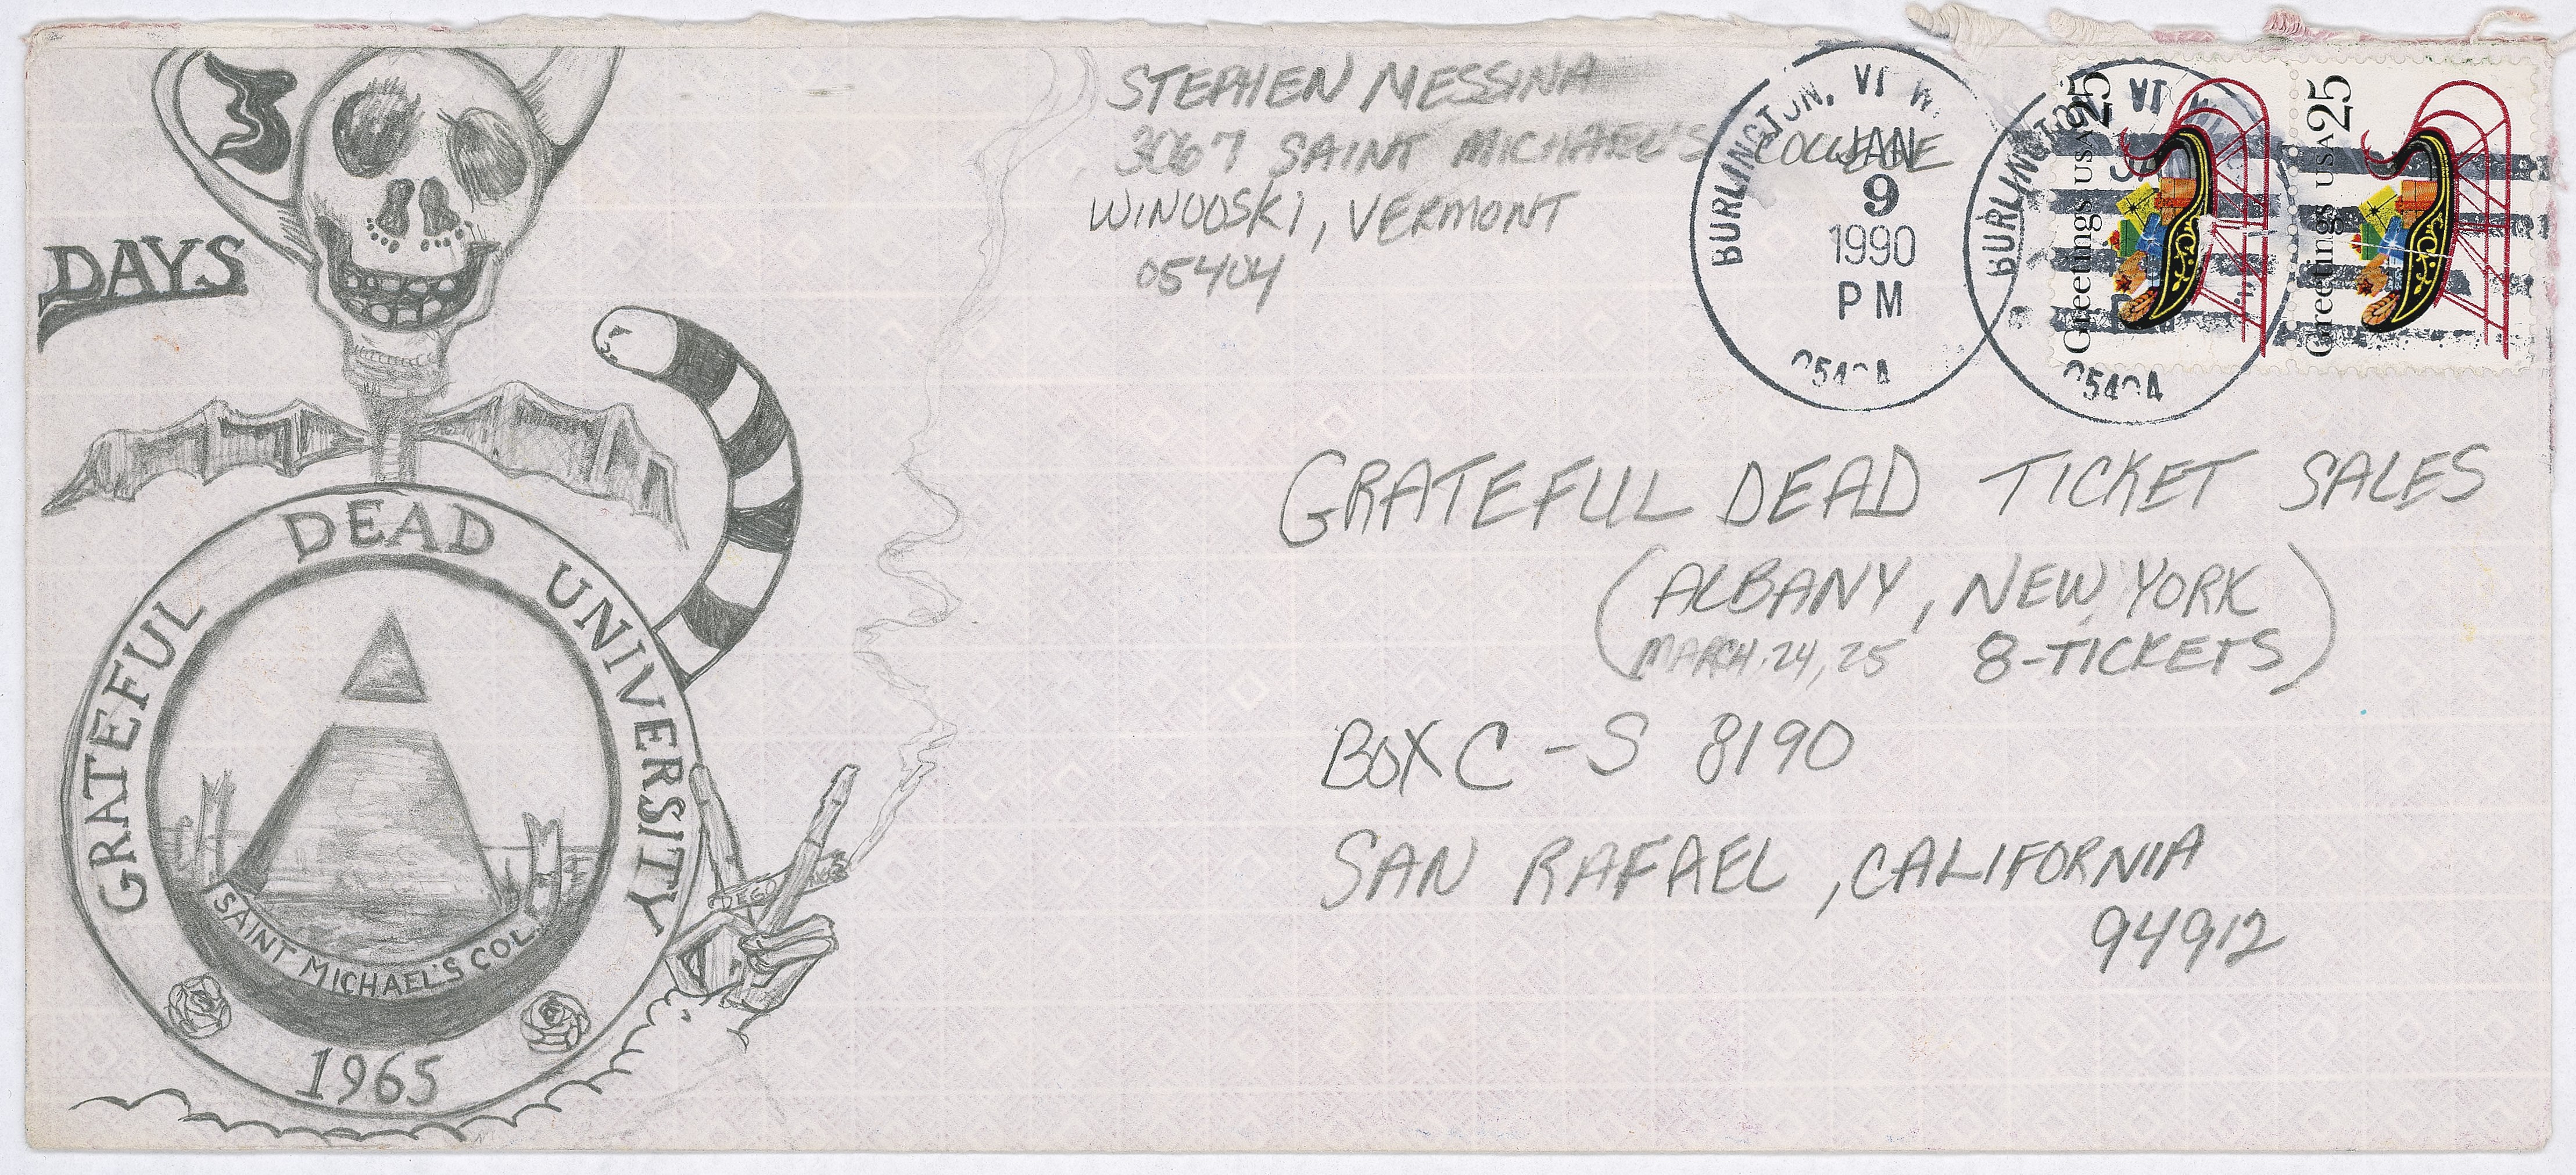 3
DAYS
GRATEFUL DEAD UNIVERSITY
SAINT MICHAEL'S COL.
1965
STEPHEN MESSINA
3067 SAINT MICHAEL'S COLLEGE
WINOOSKI, VERMONT
05404
BURLINGTON, VT
JAN
9
1990
PM
BURLINGTON VT
Greetings USA 25
Greetings USA 25
GRATEFUL DEAD TICKET SALES
(ALBANY, NEW YORK
MARCH 24, 25 8-TICKETS)
BOX C-S 8190
SAN RAFAEL, CALIFORNIA
94912